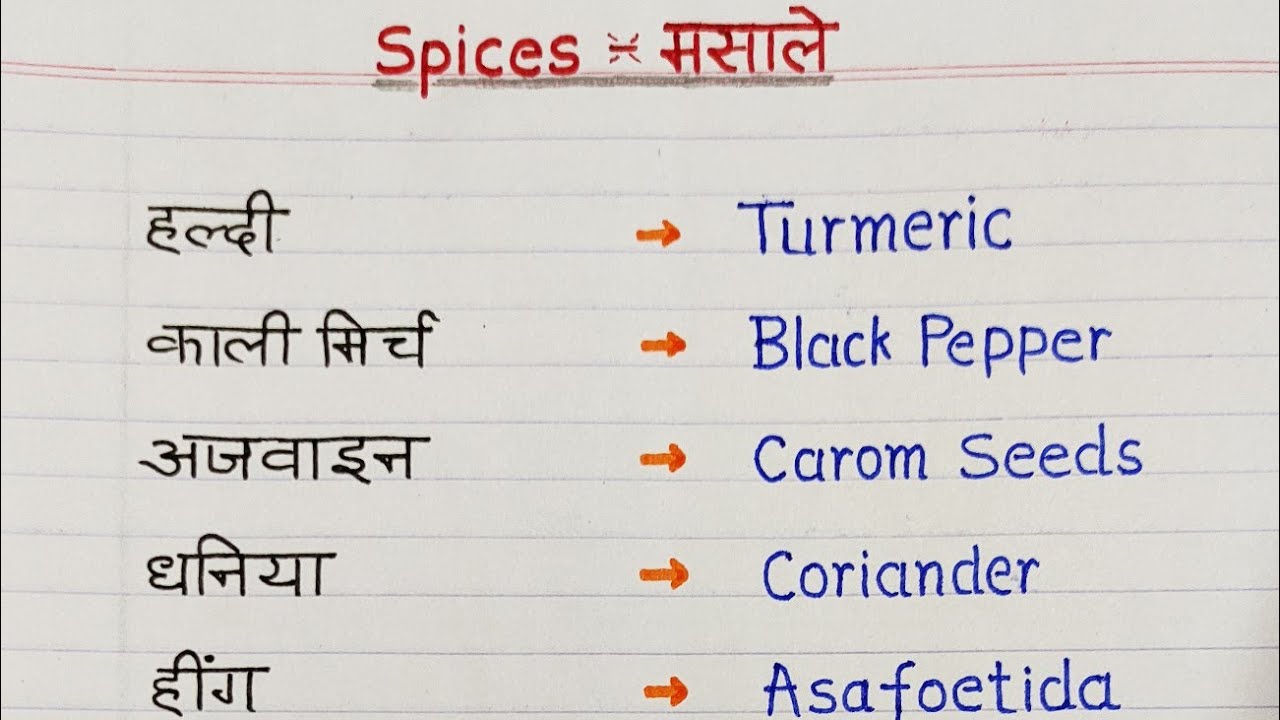 Spices × मसाले
हल्दी → Turmeric
काली मिर्च → Black Pepper
अजवाइन → Carom Seeds
धनिया → Coriander
हींग → Asafoetida